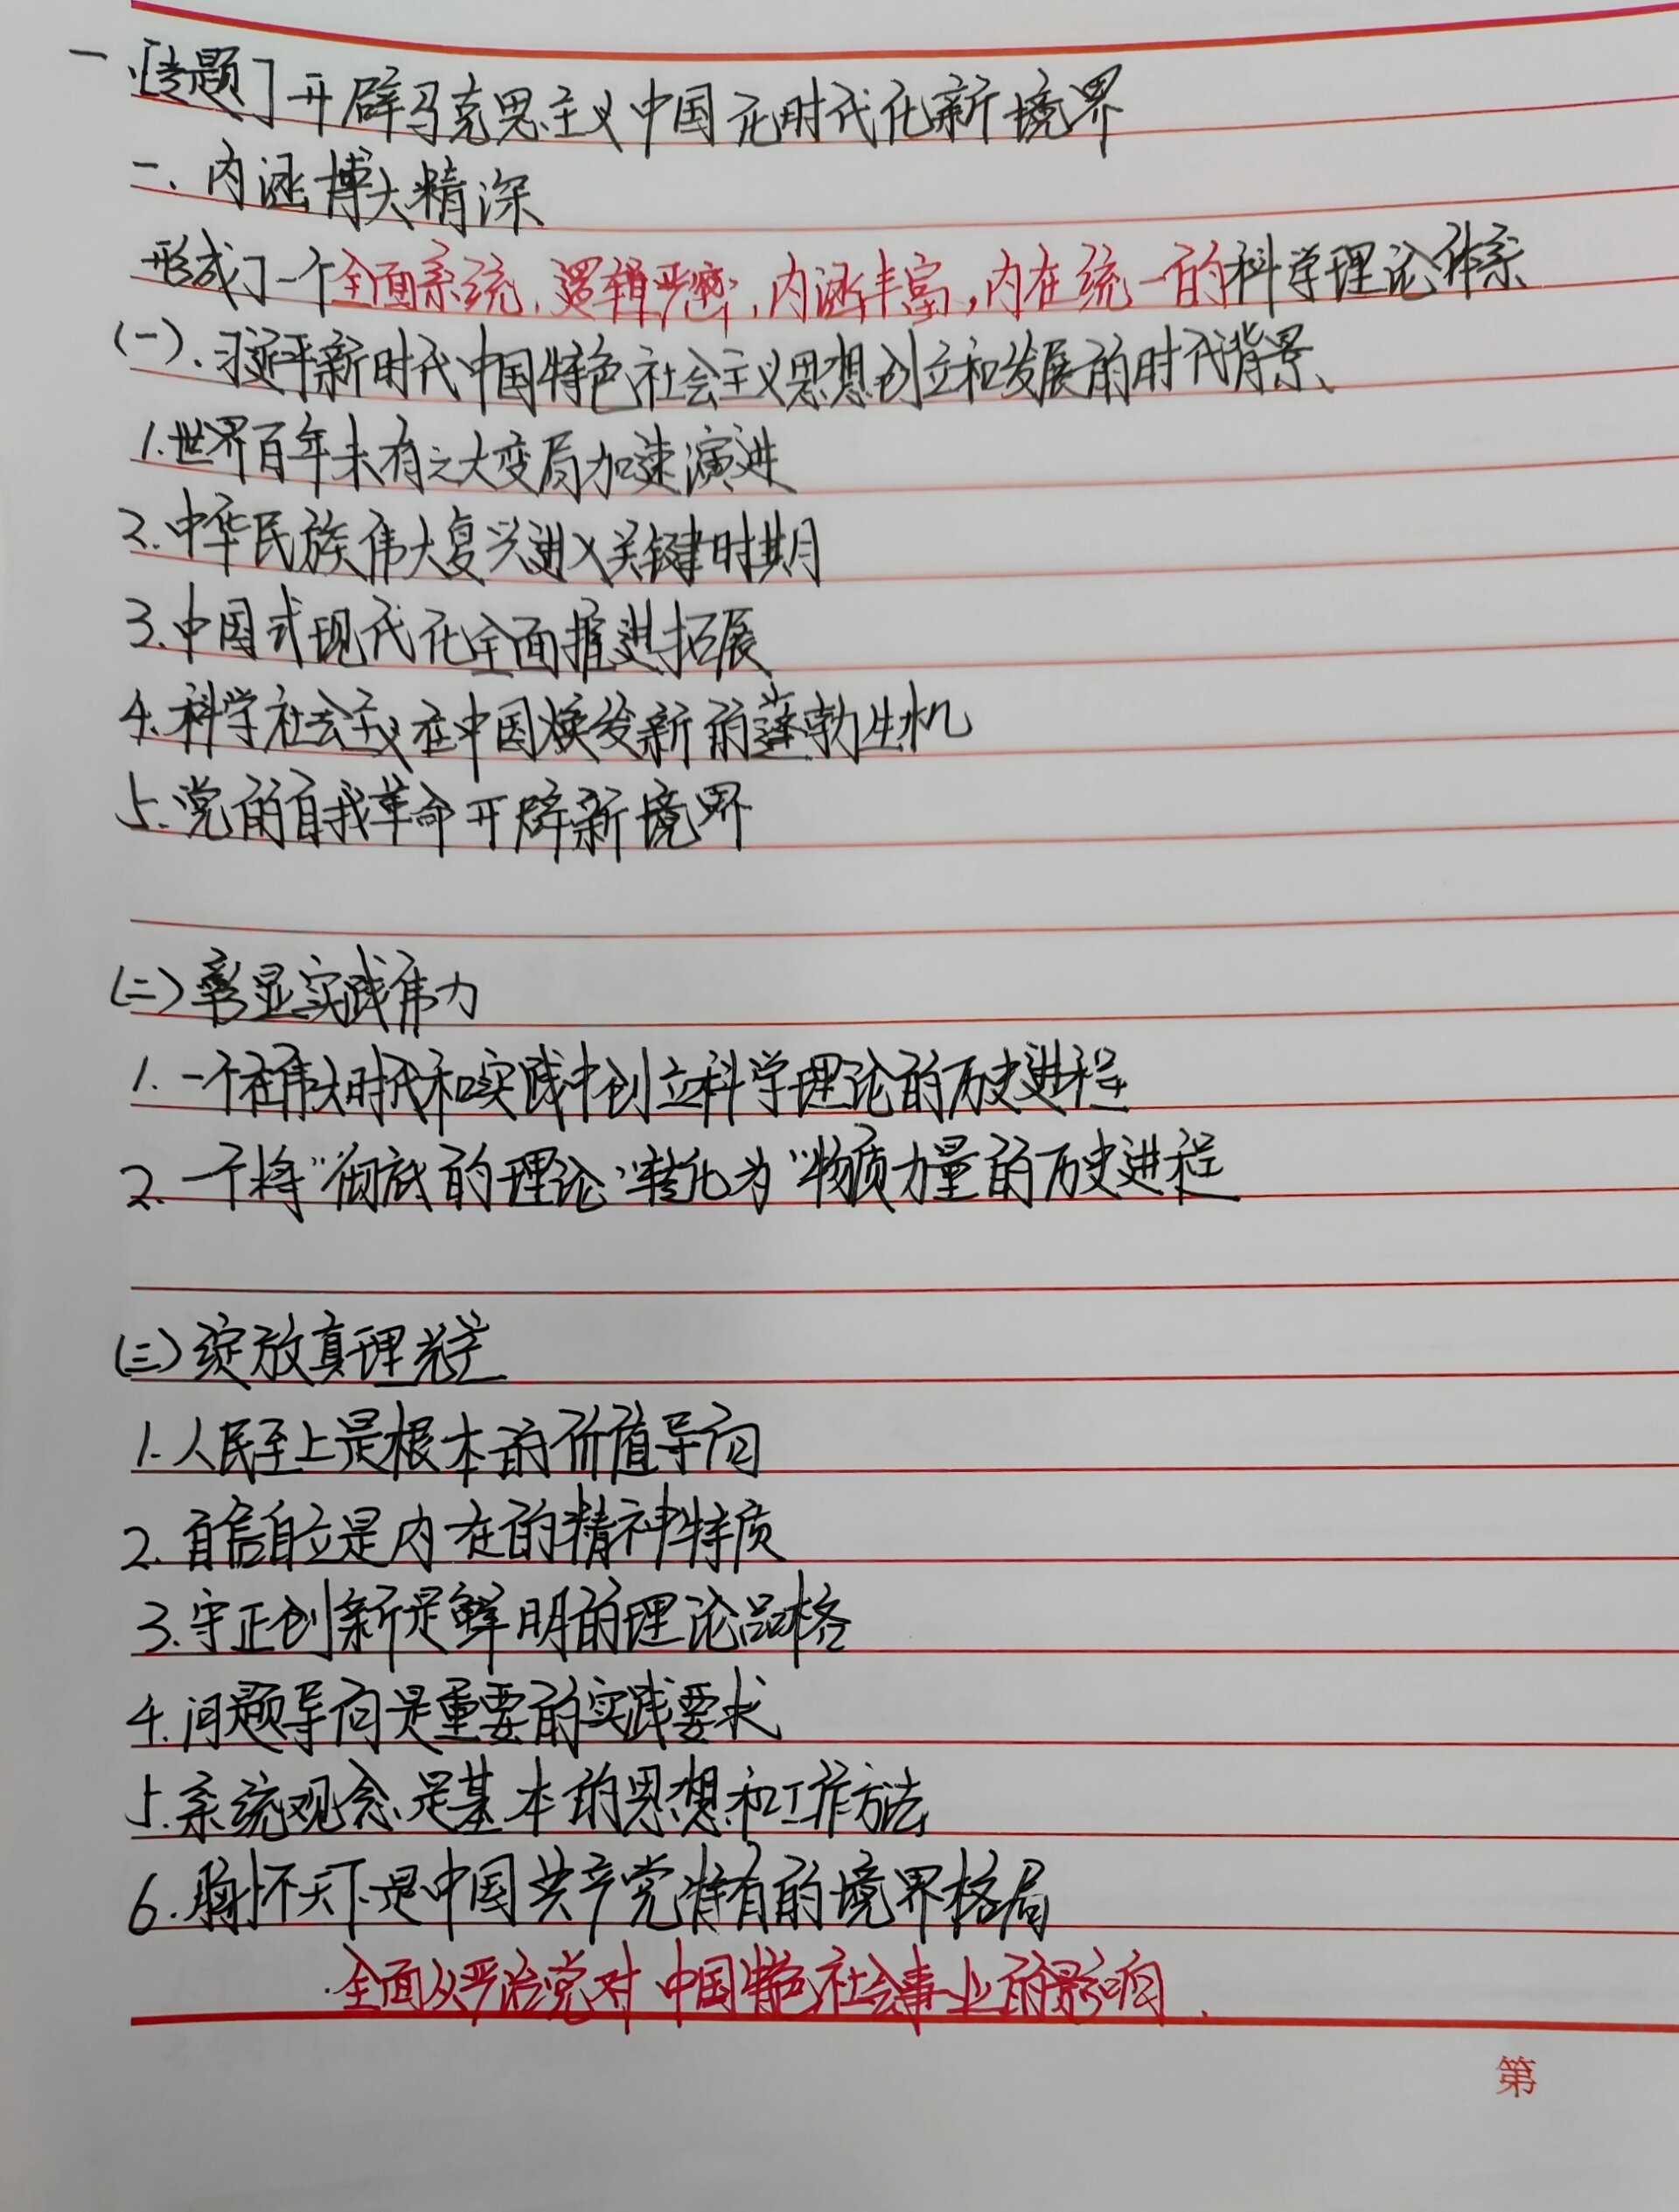 一、[专题]开辟马克思主义中国化时代化新境界
一、内涵博大精深
形成了一个全面系统，逻辑严密，内涵丰富，内在统一的科学理论体系
(一)、习近平新时代中国特色社会主义思想创立和发展的时代背景、
1.世界百年未有之大变局加速演进
2.中华民族伟大复兴进入关键时期
3.中国式现代化全面推进拓展
4.科学社会主义在中国焕发新的蓬勃生机
5.党的自我革命开辟新境界
(二)彰显实践伟力
1.一个在伟大时代和实践中创立科学理论的历史进程
2.一个将“彻底的理论”转化为“物质力量的历史进程
(三)绽放真理光芒
1.人民至上是根本的价值导向
2.自信自立是内在的精神特质
3.守正创新是鲜明的理论品格
4.问题导向是重要的实践要求
5.系统观念是基本的思想和工作方法
6.胸怀天下是中国共产党特有的境界格局
·全面从严治党对中国特色社会事业的影响、
第